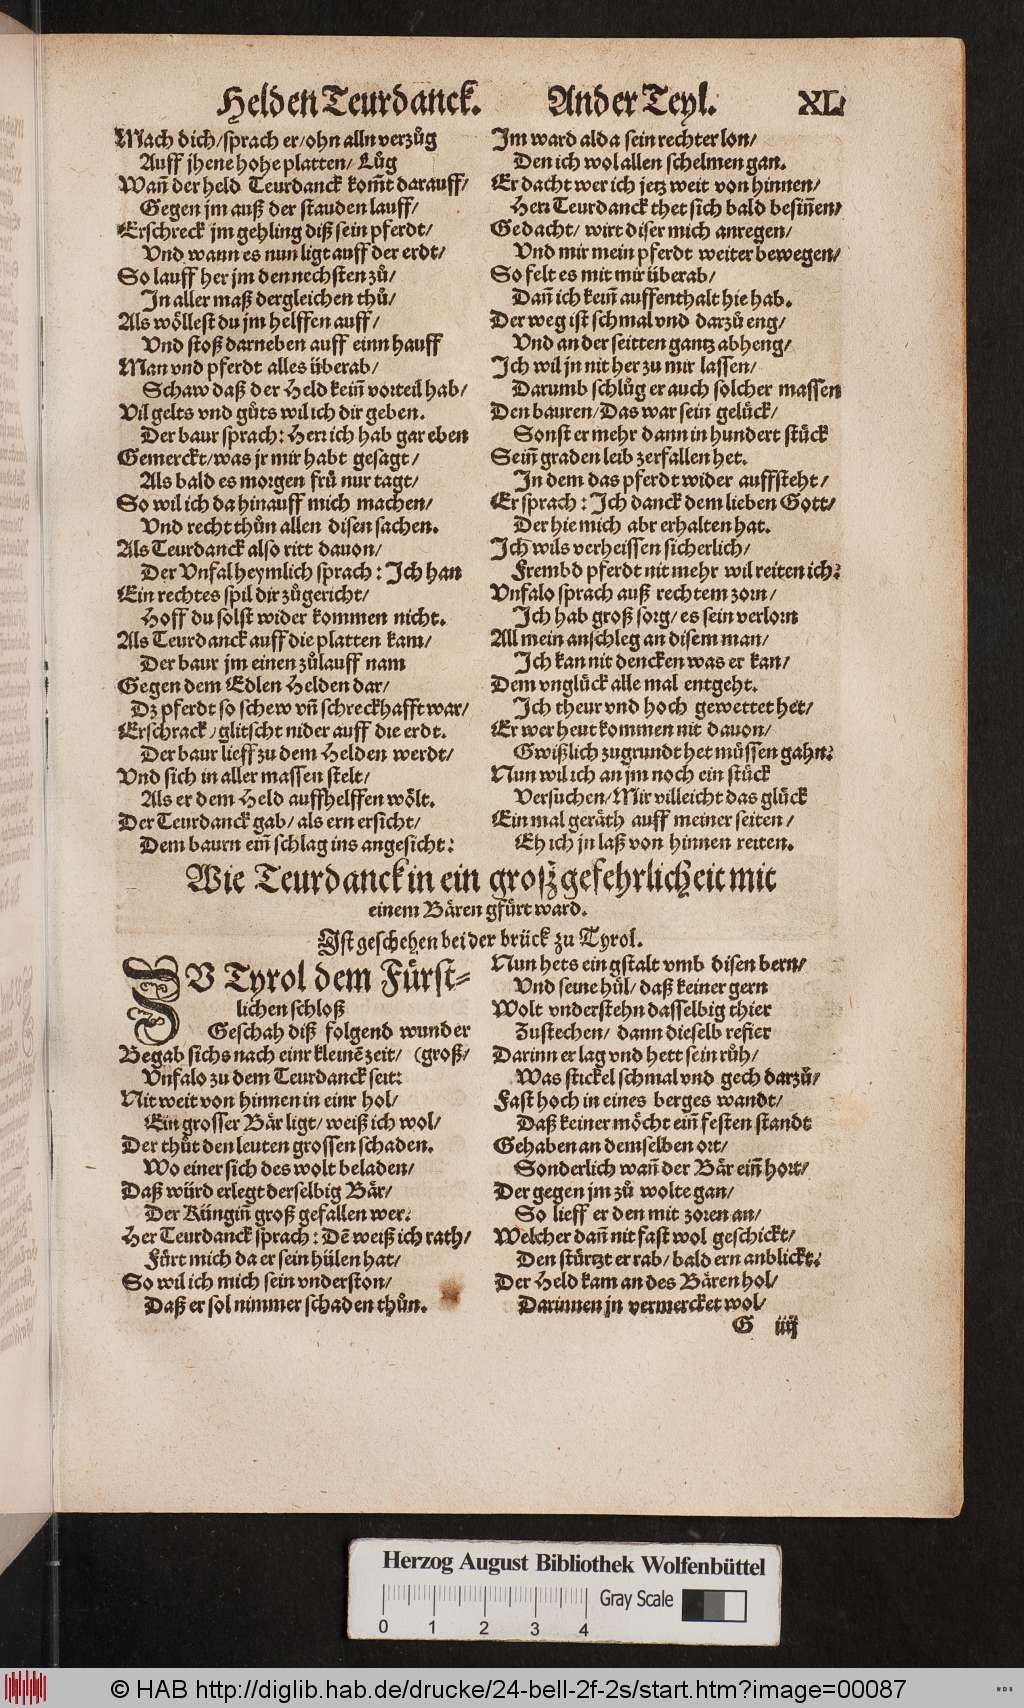 Helden Teurdanck. Ander Teyl. XL
Mach dich/sprach er/ohn alln verzůg
Auff jhene hohe platten/ Lůg
Wañ der held Teurdanck kom̃t darauff/
Gegen jm auß der stauden lauff/
Erschreck jm gehling diß sein pferdt/
Vnd wann es nun ligt auff der erdt/
So lauff her jm den nechsten zů/
In aller maß dergleichen thů/
Als wöllest du jm helffen auff/
Vnd stoß darneben auff einn hauff
Man vnd pferdt alles überab/
Schaw daß der Held kein̄ vorteil hab/
Vil gelts vnd gůts wil ich dir geben.
Der baur sprach: Herr ich hab gar eben
Gemerckt/was jr mir habt gesagt/
Als bald es morgen frü nur tagt/
So wil ich da hinauff mich machen/
Vnd recht thůn allen disen sachen.
Als Teurdanck also ritt dauon/
Der Vnfal heymlich sprach: Ich han
Ein rechtes spil dir zůgericht/
Hoff du solst wider kommen nicht.
Als Teurdanck auff die platten kam/
Der baur jm einen zůlauff nam
Gegen dem Edlen Helden dar/
Dz pferdt so schew vñ schreckhafft war/
Erschrack/glitscht nider auff die erdt.
Der baur lieff zu dem Helden werdt/
Vnd sich in aller massen stelt/
Als er dem Held auffhelffen wölt.
Der Teurdanck gab/ als ern ersicht/
Dem baurn ein̄ schlag ins angesicht:
Im ward alda sein rechter lon/
Den ich wol allen schelmen gan.
Er dacht wer ich jetz weit von hinnen/
Herr Teurdanck thet sich bald besin̄en/
Gedacht/ wirt diser mich anregen/
Vnd mir mein pferdt weiter bewegen/
So felt es mit mir überab/
Dañ ich kein̄ auffenthalt hie hab.
Der weg ist schmal vnd darzů eng/
Vnd an der seitten gantz abheng/
Ich wil jn nit her zu mir lassen/
Darumb schlůg er auch solcher massen
Den bauren/Das war sein gelück/
Sonst er mehr dann in hundert stück
Sein̄ graden leib zerfallen het.
In dem das pferdt wider auffsteht/
Er sprach: Ich danck dem lieben Gott/
Der hie mich abr erhalten hat.
Ich wils verheissen sicherlich/
Frembd pferdt nit mehr wil reiten ich:
Vnfalo sprach auß rechtem zorn/
Ich hab groß sorg/es sein verlorn
All mein anschleg an disem man/
Ich kan nit dencken was er kan/
Dem vnglück alle mal entgeht.
Ich theur vnd hoch gewettet het/
Er wer heut kommen nit dauon/
Gwißlich zu grundt het müssen gahn:
Nun wil ich an jm noch ein stück
Versuchen/Mir villeicht das glück
Ein mal geräth auff meiner seiten/
Eh ich jn laß von hinnen reiten.
Wie Teurdanck in ein groß gefehrlicheit mit
einem Bären gfürt ward.
Ist geschehen bei der brück zu Tyrol.
ZV Tyrol dem Fürst-
lichen schloß
Geschah diß folgend wunder
Begab sichs nach einr kleinē zeit/ (groß/
Vnfalo zu dem Teurdanck seit:
Nit weit von hinnen in einr hol/
Ein grosser Bär ligt/ weiß ich wol/
Der thůt den leuten grossen schaden.
Wo einer sich des wolt beladen/
Daß würd erlegt derselbig Bär/
Der Küngin̄ groß gefallen wer.
Her Teurdanck sprach: Dē weiß ich rath/
Fürt mich da er sein hülen hat/
So wil ich mich sein vnderston/
Daß er sol nimmer schaden thůn.
Nun hets ein gstalt vmb disen bern/
Vnd seine hül/ daß keiner gern
Wolt vnderstehn dasselbig thier
Zustechen/ dann dieselb refier
Darinn er lag vnd hett sein růh/
Was stickel schmal vnd gech darzů/
Fast hoch in eines berges wandt/
Daß keiner möcht ein̄ festen standt
Gehaben an demselben ort/
Sonderlich wañ der Bär ein̄ hort/
Der gegen jm zů wolte gan/
So lieff er den mit zoren an/
Welcher dañ nit fast wol geschickt/
Den stürtzt er rab/ bald ern anblickt:
Der Held kam an des Bären hol/
Darinnen jn vermercket wol/
G iiij
Herzog August Bibliothek Wolfenbüttel
Gray Scale
0 1 2 3 4
© HAB http://diglib.hab.de/drucke/24-bell-2f-2s/start.htm?image=00087